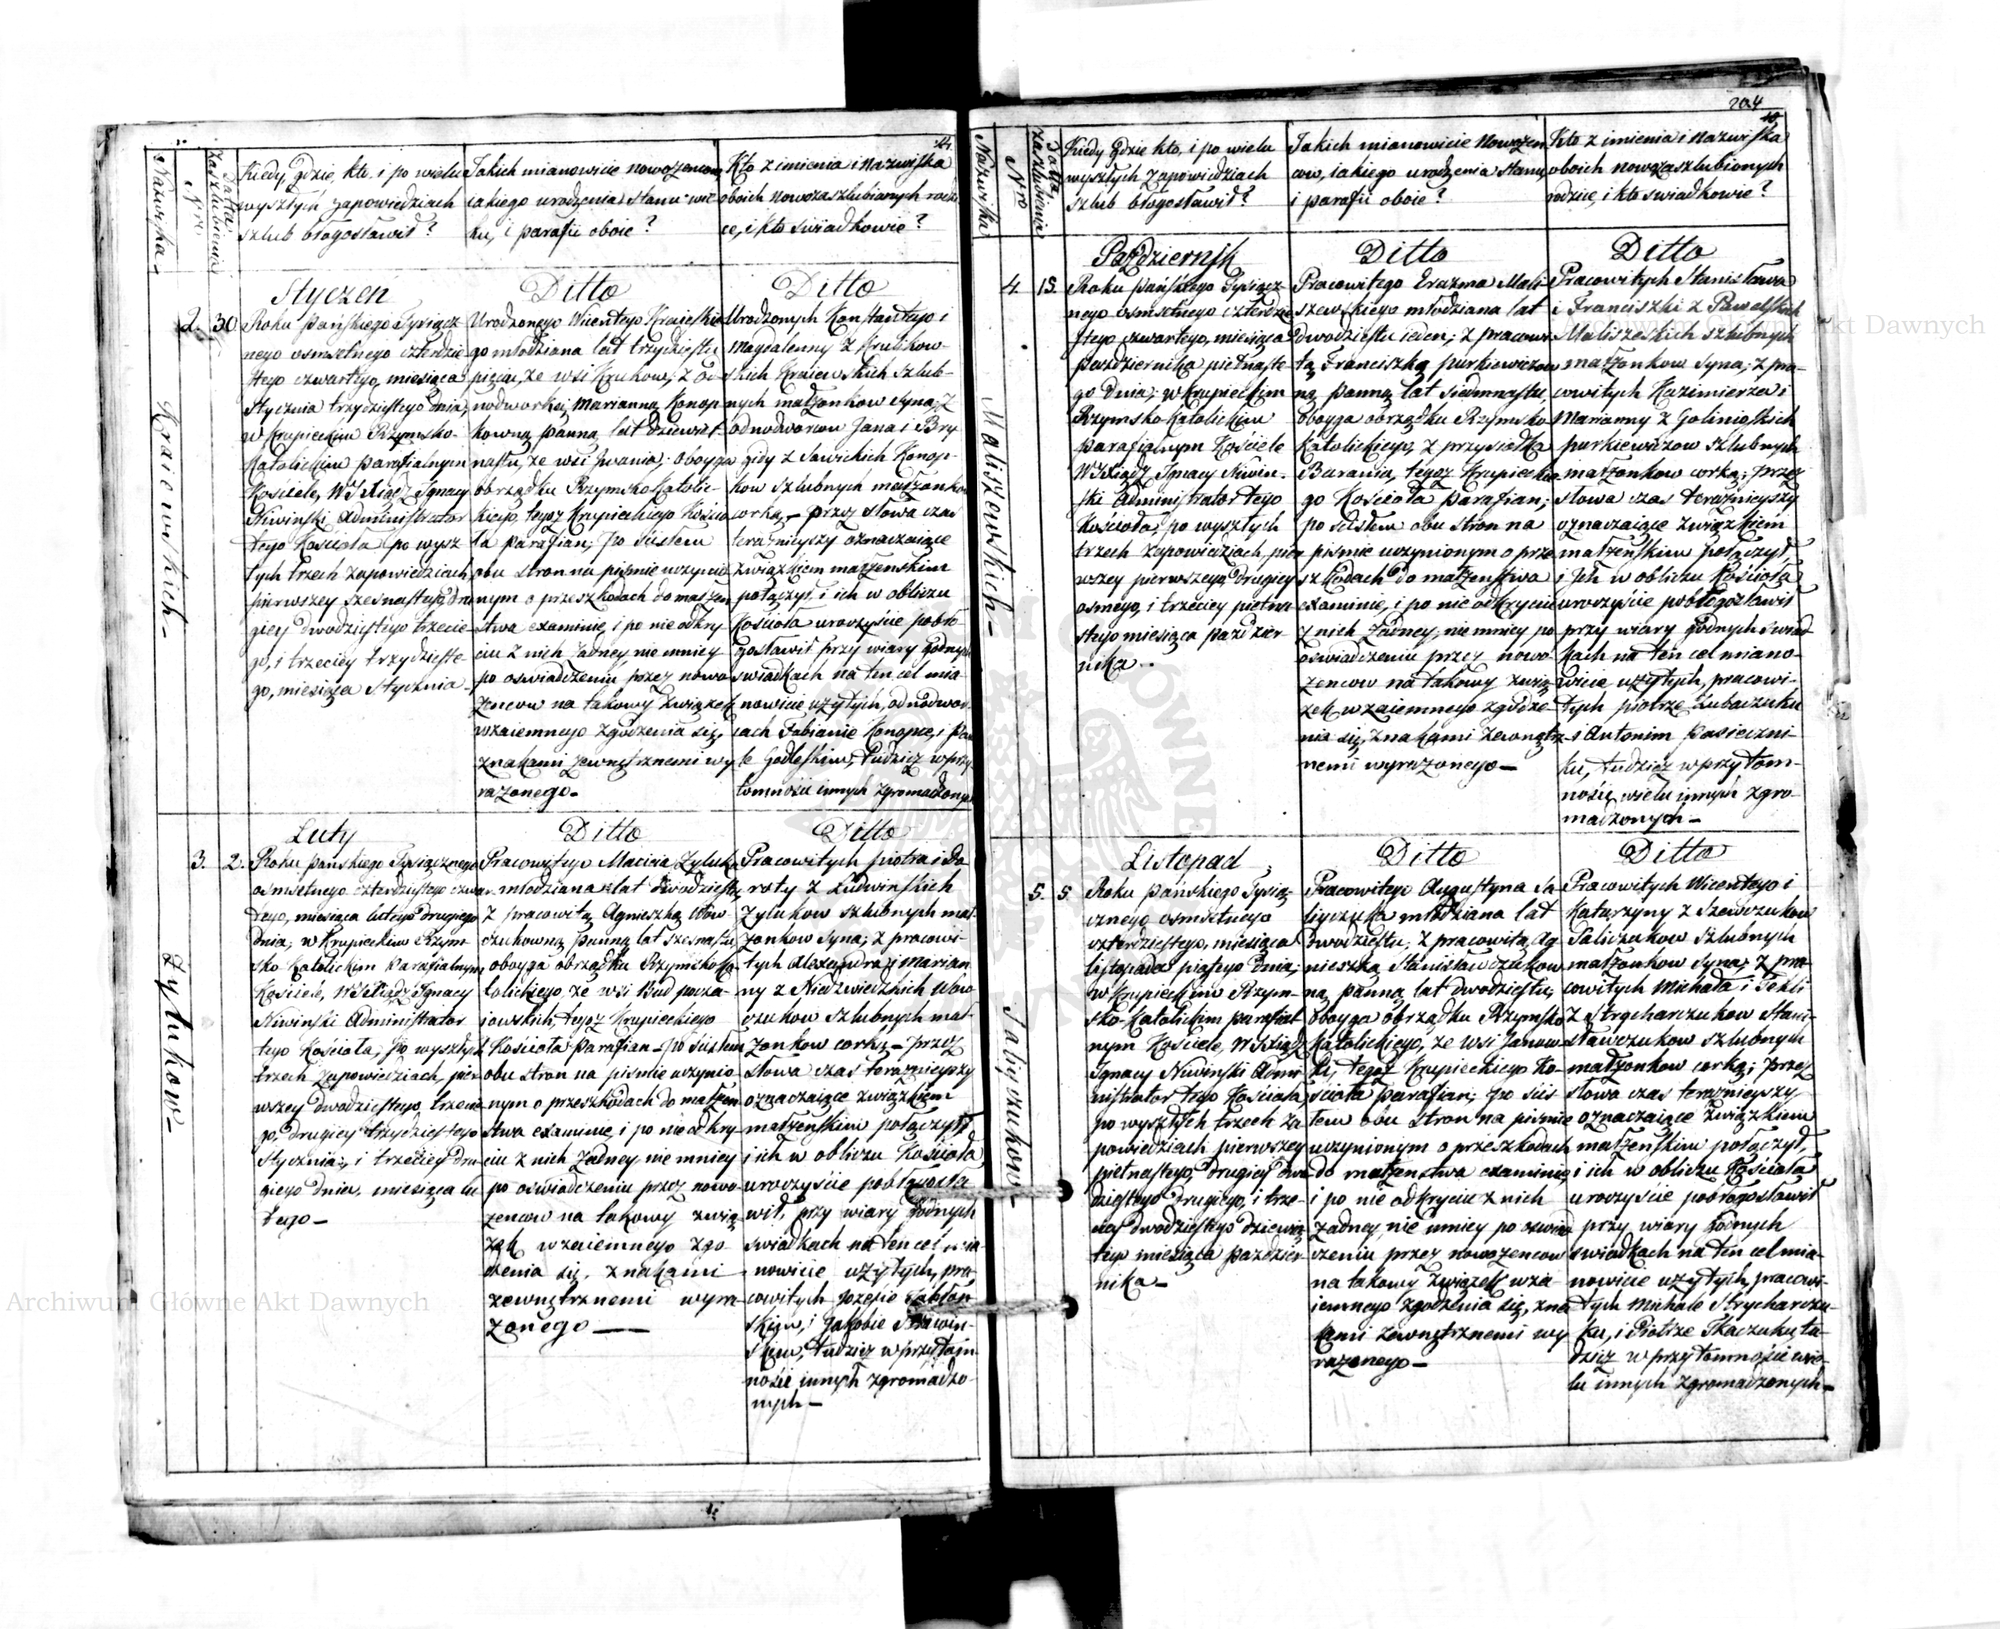 14.
Nazwiska
Nro
Datta
Zaszlubienia
Kiedy, gdzie, kto, i po wielu
wyszłych zapowiedziach
szlub błogosławił?
Jakich mianowicie nowożencow,
iakiego urodzenia, stanu, wie
ku, i parafii oboie?
Kto z imienia i nazwiska
oboich nowozaszlubionych rodzi
ce, i kto swiadkowie?
Kraiewskich
2. 30
Styczen
Roku Pańskiego Tysiącz
nego osmsetnego czterdzie
stego czwartego, miesiąca
Stycznia trzydziestego dnia,
w Krupieckim Rzymsko-
Katolickim parafialnym
Kościele, W. Xiądz Ignacy
Niwinski Administrator
tego Kościoła, po wysz
łych trzech zapowiedziach
pierwszey szesnastego, dru
giey dwudziestego trzecie
go, i trzeciey trzydzieste
go, miesiąca Stycznia
Ditto
Urodzonego Wicentego Kraiewskie
go młodziana lat trzydziestu
pięciu, ze wsi Krukow, z od
nodworką Marianną Konop
kowną panną lat dziewięt
nastu, ze wsi Iwania; oboyga
obrządku Rzymsko Katolic-
kiego, tegoż Krupieckiego Kościo
ła parafian; po scisłem
obu stron na pismie uczynio
nym o przeszkodach do małżen
stwa examinie, i po nie odkry
ciu z nich żadney, nie mniey
po oswiadczeniu przez nowo
żencow na takowy związek
wzaiemnego zgodzenia się,
znakami zewnętrznemi wy
rażonego-
Ditto
Urodzonych Konstantego i
Magdalenny z Krulikow-
skich Kraiewskich szlub-
nych małżonkow syna; z
odnodworcow Jana i Bry
gidy z Sawickich Konop-
kow szlubnych małżonkow
corką,- przez słowa czas
teraznieyszy oznaczaiące
związkiem małżenskim
połączył, i ich w obliczu
Kościoła uroczyście pobło
gosławił przy wiary godnych
swiadkach na ten cel mia
nowicie użytych, odnodwor-
cach Fabianie Konopce, i Paw
le Godleskim, tudzież w przy
tomności innych zgromadzonych
Żylukow-
3. 2.
Luty
Roku Pańskiego Tysiącznego
osmsetnego czterdziestego czwar
tego, miesiąca lutego drugiego
dnia; w Krupieckim Rzym-
sko Katolickim Parafialnym
Kościele, W. Xiądz Ignacy
Niwinski Administrator
tego Kościoła, po wyszłych
trzech zapowiedziach, pier
wszey dwudziestego trzecie
go, drugiey trzydziestego
Stycznia, i trzeciey dru
giego dnia, miesiąca lu
tego-
Ditto
Pracowitego Macieia Żyluka
młodziana lat dwudziestu,
z pracowitą Agnieszką Wow
czukowną panną lat szesnastu
oboyga obrządku Rzymsko Ka
tolickiego, ze wsi Bud
iowskich, tegoż Krupieckiego
Kościoła parafian- po scisłem
obu stron na pismie uczynio
nym o przeszkodach do małżen
stwa examinie, i po nie odkry
ciu z nich żadney, nie mniey
po oswiadczeniu przez nowo
żencow na takowy zwią
zek wzaiemnego zgo
dzenia się, znakami
zewnętrznemi wyra
żonego-
Ditto
Pracowitych Piotra i Do
roty z Ludwinskich
Żylukow szlubnych mał
żonkow syna; z pracowi
tych Alexandra i Marian
ny z Niedzwiedzkich Wow
czukow szlubnych mał
żonkow corką- przez
słowa czas teraznieyszy
oznaczaiące związkiem
małżenskim połączył
i ich w obliczu Kościoła
uroczyście pobłogosła
wił, przy wiary godnych
swiadkach na ten cel mia-
nowicie użytych, pra
cowitych Jozefie
skim, i Jakobie
skim, tudzież w przytom
ności innych zgromadzo-
nych-
204
Nazwiska
Nro
Datta
Zaszlubienia
Kiedy gdzie kto, i po wielu
wyszłych zapowiedziach
szlub błogosławił?
Jakich mianowicie Nowożen
cow, iakiego urodzenia stanu,
i parafii oboie?
Kto z imienia i nazwiska
oboich nowozaszlubionych
rodzice, i kto swiadkowie?
Maliszewskich-
4. 15.
Październik
Roku Pańskiego Tysiącz
nego osmsetnego czterdzie
stego czwartego, miesiąca
Pazdziernika piętnaste
go dnia; w Krupieckim
Rzymsko-Katolickim
Parafialnym Kościele
W. Xiądz Ignacy Niwin-
ski Administrator tego
Kościoła, po wyszłych
trzech zapowiedziach, pier
wszey pierwszego, drugiey
osmego, i trzeciey piętna
stego miesiąca pazdzier-
nika..
Ditto
Pracowitego Erazma Mali
szewskiego młodziana lat
dwudziestu ieden; z pracowi
tą Franciszką Purkiewiczow
ną panną lat siedmnastu,
oboyga obrządku Rzymsko
Katolickiego, z przysiołka
Barania, tegoż Krupieckie
go Kościoła Parafian;
po scisłem obu stron na
pismie uczynionym o prze
szkodach do małżenstwa
examinie, i po nie odkryciu
z nich żadney, nie mniey po
oswiadczeniu przez nowo
żencow na takowy zwią
zek wzaiemnego zgodze
nia się, znakami zewnętrz
nemi wyrażonego-
Ditto
Pracowitych Stanisława
i Franciszki z Pawelskich
Maliszeskich szlubnych
małżonkow syna; z pra
cowitych Kazimierza i
Marianny z Golinioskich
Purkiewiczow szlubnych
małżonkow corką; przez
słowa czas teraznieyszy
oznaczaiące związkiem
małżenskim połączył
i ich w obliczu Kościoła
uroczyście pobłogosławił
przy wiary godnych swiad
kach na ten cel miano-
wicie użytych, pracowi-
tych Piotrze Łubaczuku
i Antonim Pasieczni-
ku, tudzież w przytom-
ności wielu innych zgro-
madzonych-
Saliyzukow-
5. 5
Listopad
Roku Pańskiego Tysią
cznego osmsetnego
czterdziestego, miesiąca
listopada piątego dnia;
w Krupieckim Rzym-
sko-Katolickim parafial
nym Kościele, W. Xiądz
Ignacy Niwinski Admi
nistrator tego Kościoła
po wyszłych trzech za
powiedziach pierwszey
piętnastego, drugiey dwu
dziestego drugiego, i trze-
ciey dwudziestego dziewią
tego miesiąca pazdzier
nika-
Ditto
Pracowitego Augustyna Sa
liyczuka młodziana lat
dwudziestu; z pracowitą Ag
nieszką Stanisławczukow
ną panną lat dwudziestu,
oboyga obrządku Rzymsko
Katolickiego, ze wsi Janow
ki, tegoż Krupieckiego Ko-
scioła Parafian; po scis
łem obu stron na pismie
uczynionym o przeszkodach
do małżenstwa examinie,
i po nie odkryciu z nich
żadney, nie mniey po oswiad
czeniu przez nowożencow
na takowy związek wza-
iemnego zgodzenia się, zna
kami zewnętrznemi wy
rażonego-
Ditto
Pracowitych Wicentego i
Katarzyny z Szewczukow
Saliczukow szlubnych
małżonkow syna; z pra
cowitych Michała i Tekli
z Strycharczukow Stani-
sławczukow szlubnych
małżonkow corką; przez
słowa czas teraznieyszy
oznaczaiące związkiem
małżenskim połączył,
i ich w obliczu Kościoła
uroczyście pobłogosławił
przy wiary godnych
swiadkach na ten cel mia-
nowicie użytych, pracowi-
tych Michale Strycharczu-
ku, i Piotrze Tkaczuku tu-
dzież w przytomności wie-
lu innych zgromadzonych-
Archiwum Główne Akt Dawnych
Archiwum Główne Akt Dawnych